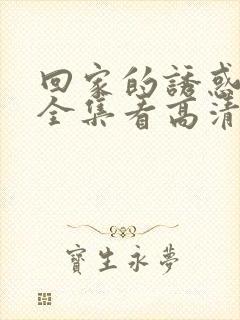 回家的誘惑
全集看高清
寶生永夢